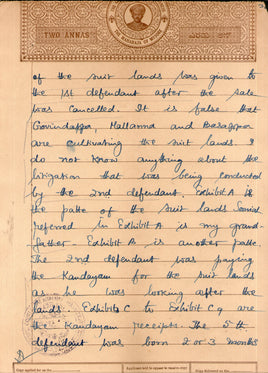 TWO ANNAS
of the suit lands was given to
the 1st defendant after the sale
was cancelled. It is false that
Govindappa, Mallanna and Basappa
are cultivating the suit lands. I
do not know anything about the
litigation that was being conducted
by the 2nd defendant. Exhibit A is
the patta of the suit lands
referred in Exhibit A is my grand-
father. Exhibit A is another patta.
The 2nd defendant was paying
the Kandayam for the suit lands
as he was looking after the
lands. Exhibits C to Exhibit C 9 are
the Kandayam receipts. The 5th
defendant was born 2 or 3 months